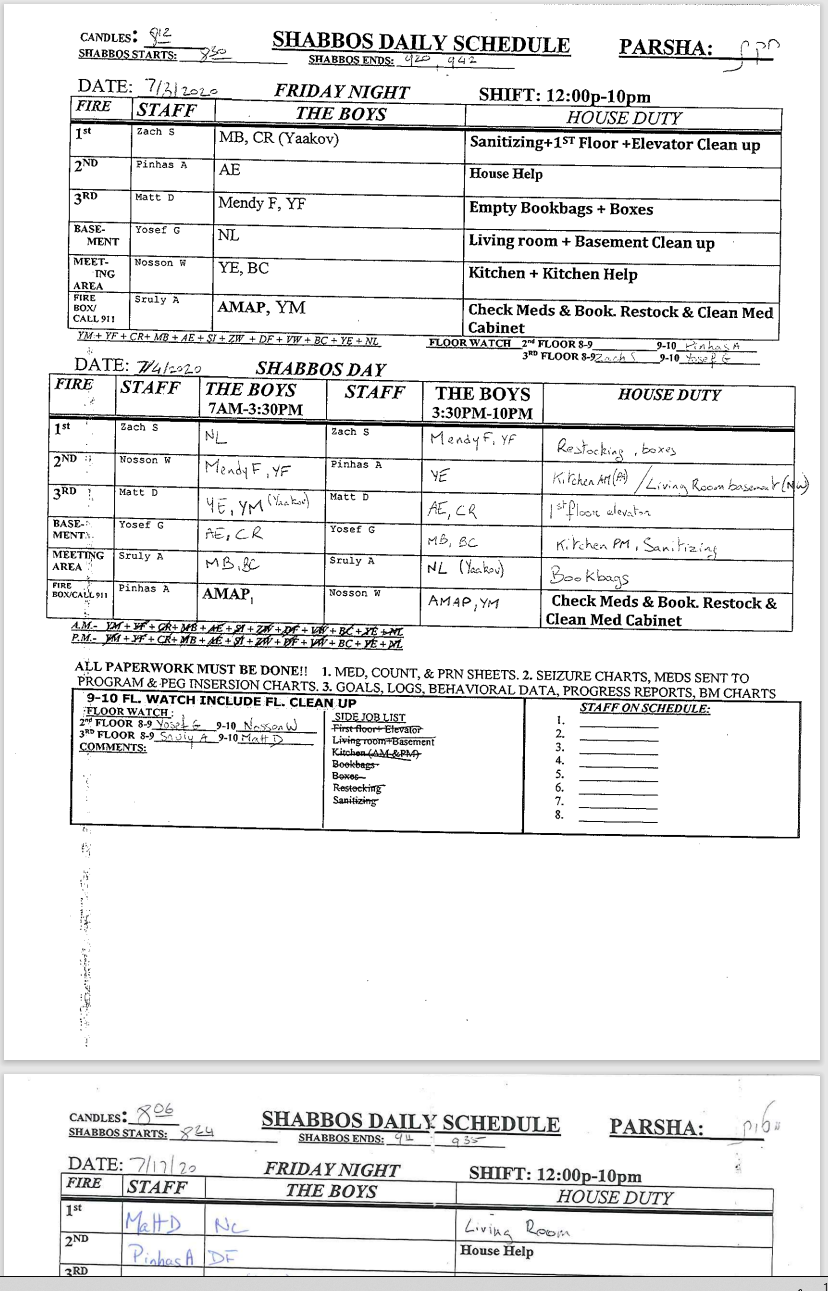 CANDLES: 812
SHABBOS STARTS: 830
SHABBOS DAILY SCHEDULE
SHABBOS ENDS: 920, 942
PARSHA:
DATE: 7/3/2020 FRIDAY NIGHT SHIFT: 12:00p-10pm
FIRE STAFF THE BOYS HOUSE DUTY
1st Zach S MB, CR (Yaakov) Sanitizing+1ST Floor +Elevator Clean up
2ND Pinhas A AE House Help
3RD Matt D Mendy F, YF Empty Bookbags + Boxes
BASE-MENT Yosef G NL Living room + Basement Clean up
MEET-ING AREA Nosson W YE, BC Kitchen + Kitchen Help
FIRE BOX/ CALL 911 Sruly A AMAP, YM Check Meds & Book. Restock & Clean Med Cabinet
YM + YF + CR+ MB + AE + SI + ZW + DF + VW + BC + YE + NL
FLOOR WATCH 2nd FLOOR 8-9 9-10 Pinhas A
3RD FLOOR 8-9 Zach S 9-10 Yosef G
DATE: 7/4/2020 SHABBOS DAY
FIRE STAFF THE BOYS 7AM-3:30PM STAFF THE BOYS 3:30PM-10PM HOUSE DUTY
1st Zach S NL Zach S Mendy F, YF Restocking, boxes
2ND Nosson W Mendy F, YF Pinhas A YE Kitchen AM (PA) / Living Room basement (NW)
3RD Matt D YE, YM (Yaakov) Matt D AE, CR 1st floor elevator
BASE-MENT Yosef G AE, CR Yosef G MB, BC Kitchen PM, Sanitizing
MEETING AREA Sruly A MB, BC Sruly A NL (Yaakov) Bookbags
FIRE BOX/CALL 911 Pinhas A AMAP, Nosson W AMAP, YM Check Meds & Book. Restock & Clean Med Cabinet
A.M.- YM + YF + CR+ MB + AE + SI + ZW + DF + VW + BC + YE + NL
P.M.- YM + YF + CR+ MB + AE + SI + ZW + DF + VW + BC + YE + NL
ALL PAPERWORK MUST BE DONE!! 1. MED, COUNT, & PRN SHEETS. 2. SEIZURE CHARTS, MEDS SENT TO
PROGRAM & PEG INSERSION CHARTS. 3. GOALS, LOGS, BEHAVIORAL DATA, PROGRESS REPORTS, BM CHARTS
9-10 FL. WATCH INCLUDE FL. CLEAN UP
FLOOR WATCH:
2nd FLOOR 8-9 Yosef G 9-10 Nosson W
3RD FLOOR 8-9 Sruly A 9-10 Matt D
COMMENTS:
SIDE JOB LIST
First floor+ Elevator
Living room+Basement
Kitchen (AM &PM)
Bookbags
Boxes
Restocking
Sanitizing
STAFF ON SCHEDULE:
1.
2.
3.
4.
5.
6.
7.
8.
CANDLES: 806
SHABBOS STARTS: 824
SHABBOS DAILY SCHEDULE
SHABBOS ENDS: 914 935
PARSHA:
DATE: 7/17/20 FRIDAY NIGHT SHIFT: 12:00p-10pm
FIRE STAFF THE BOYS HOUSE DUTY
1st Matt D NL Living Room
2ND Pinhas A DF House Help
3RD